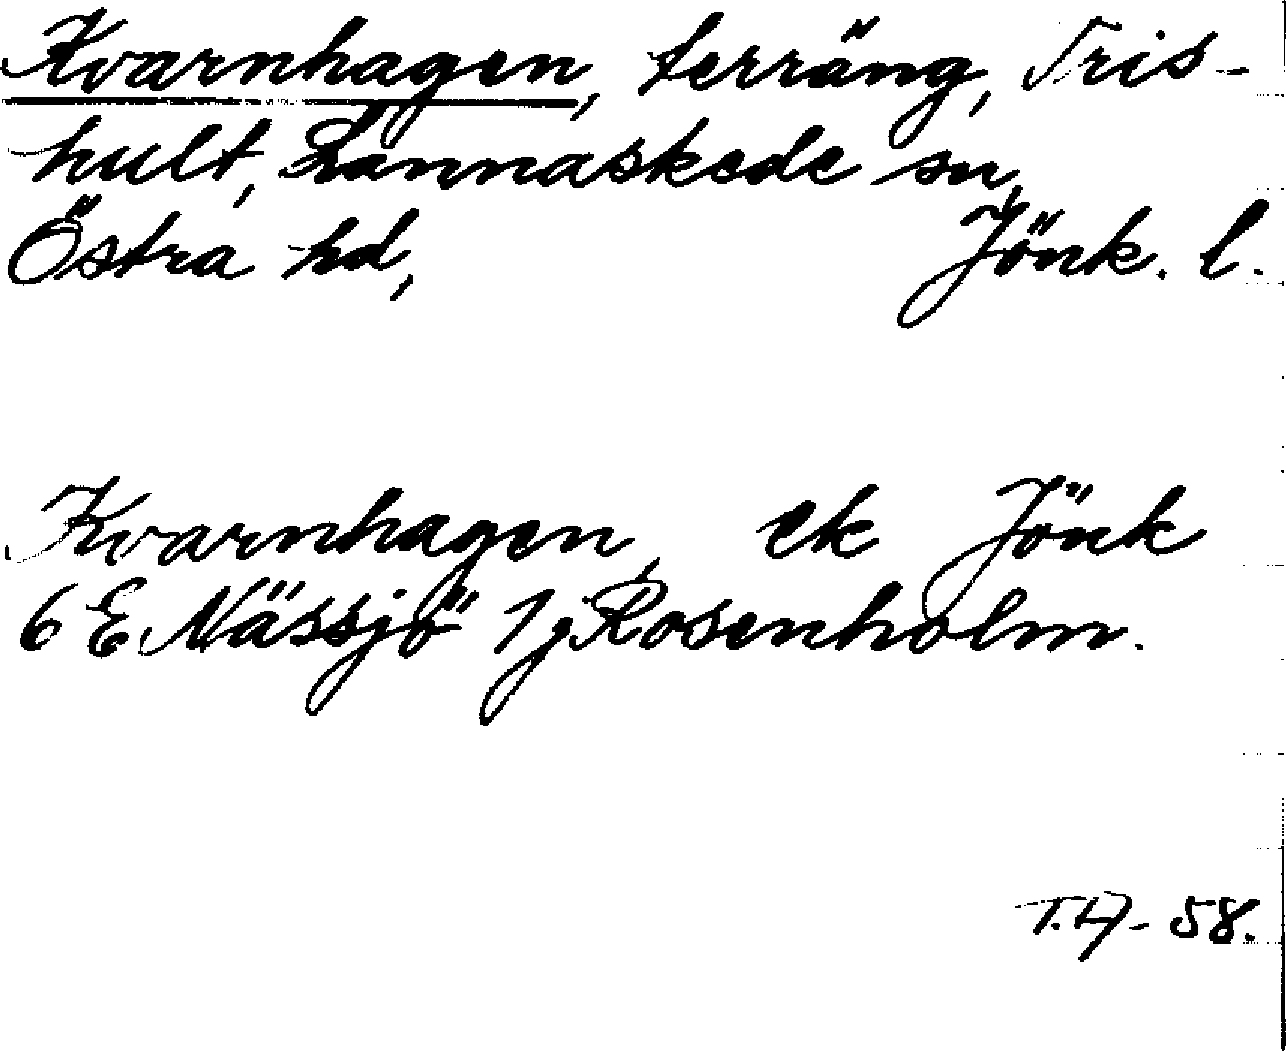 Kvarnhagen, terräng, Tris-
hult, Lannaskede sn,
Östra hd, Jönk. l.
Kvarnhagen, ek Jönk
6 E Nässjö 1j Rosenholm.
T.H- 58.